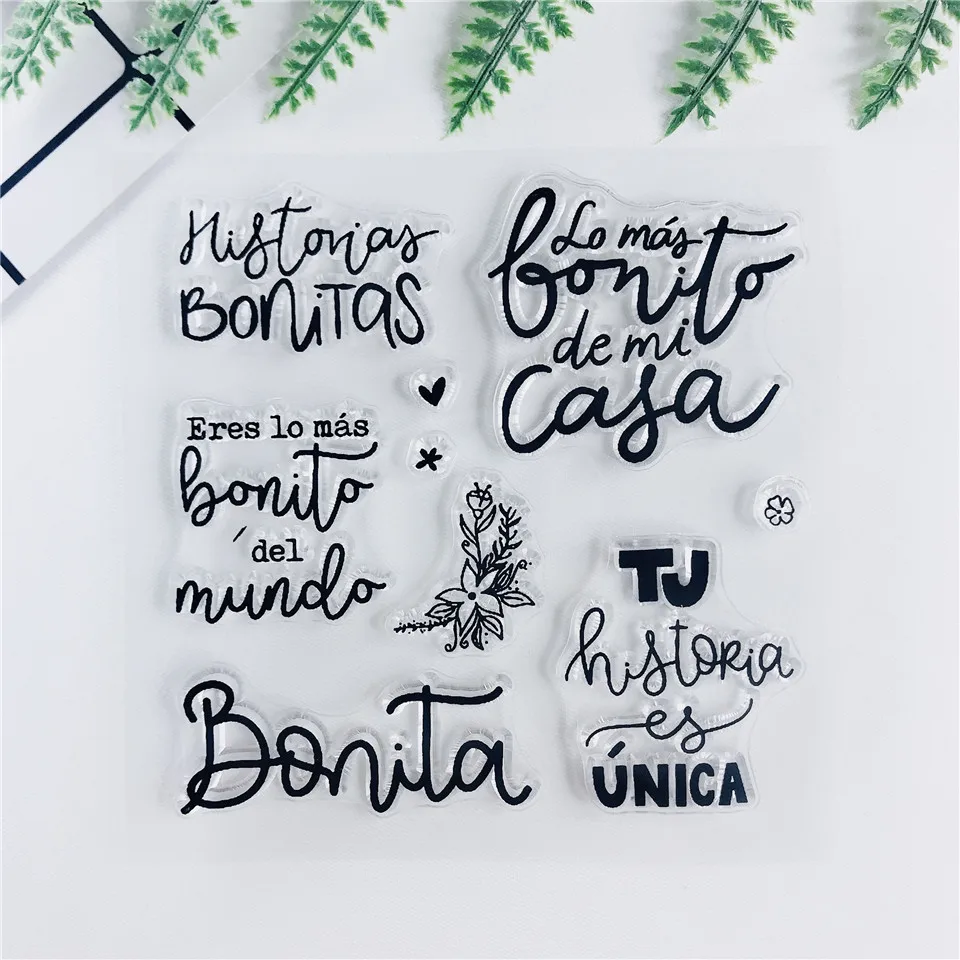 Historias
BONITAS
Lo más
bonito
de mi
Casa
Eres lo más
bonito
del
mundo
TU
historia
es
ÚNICA
Bonita